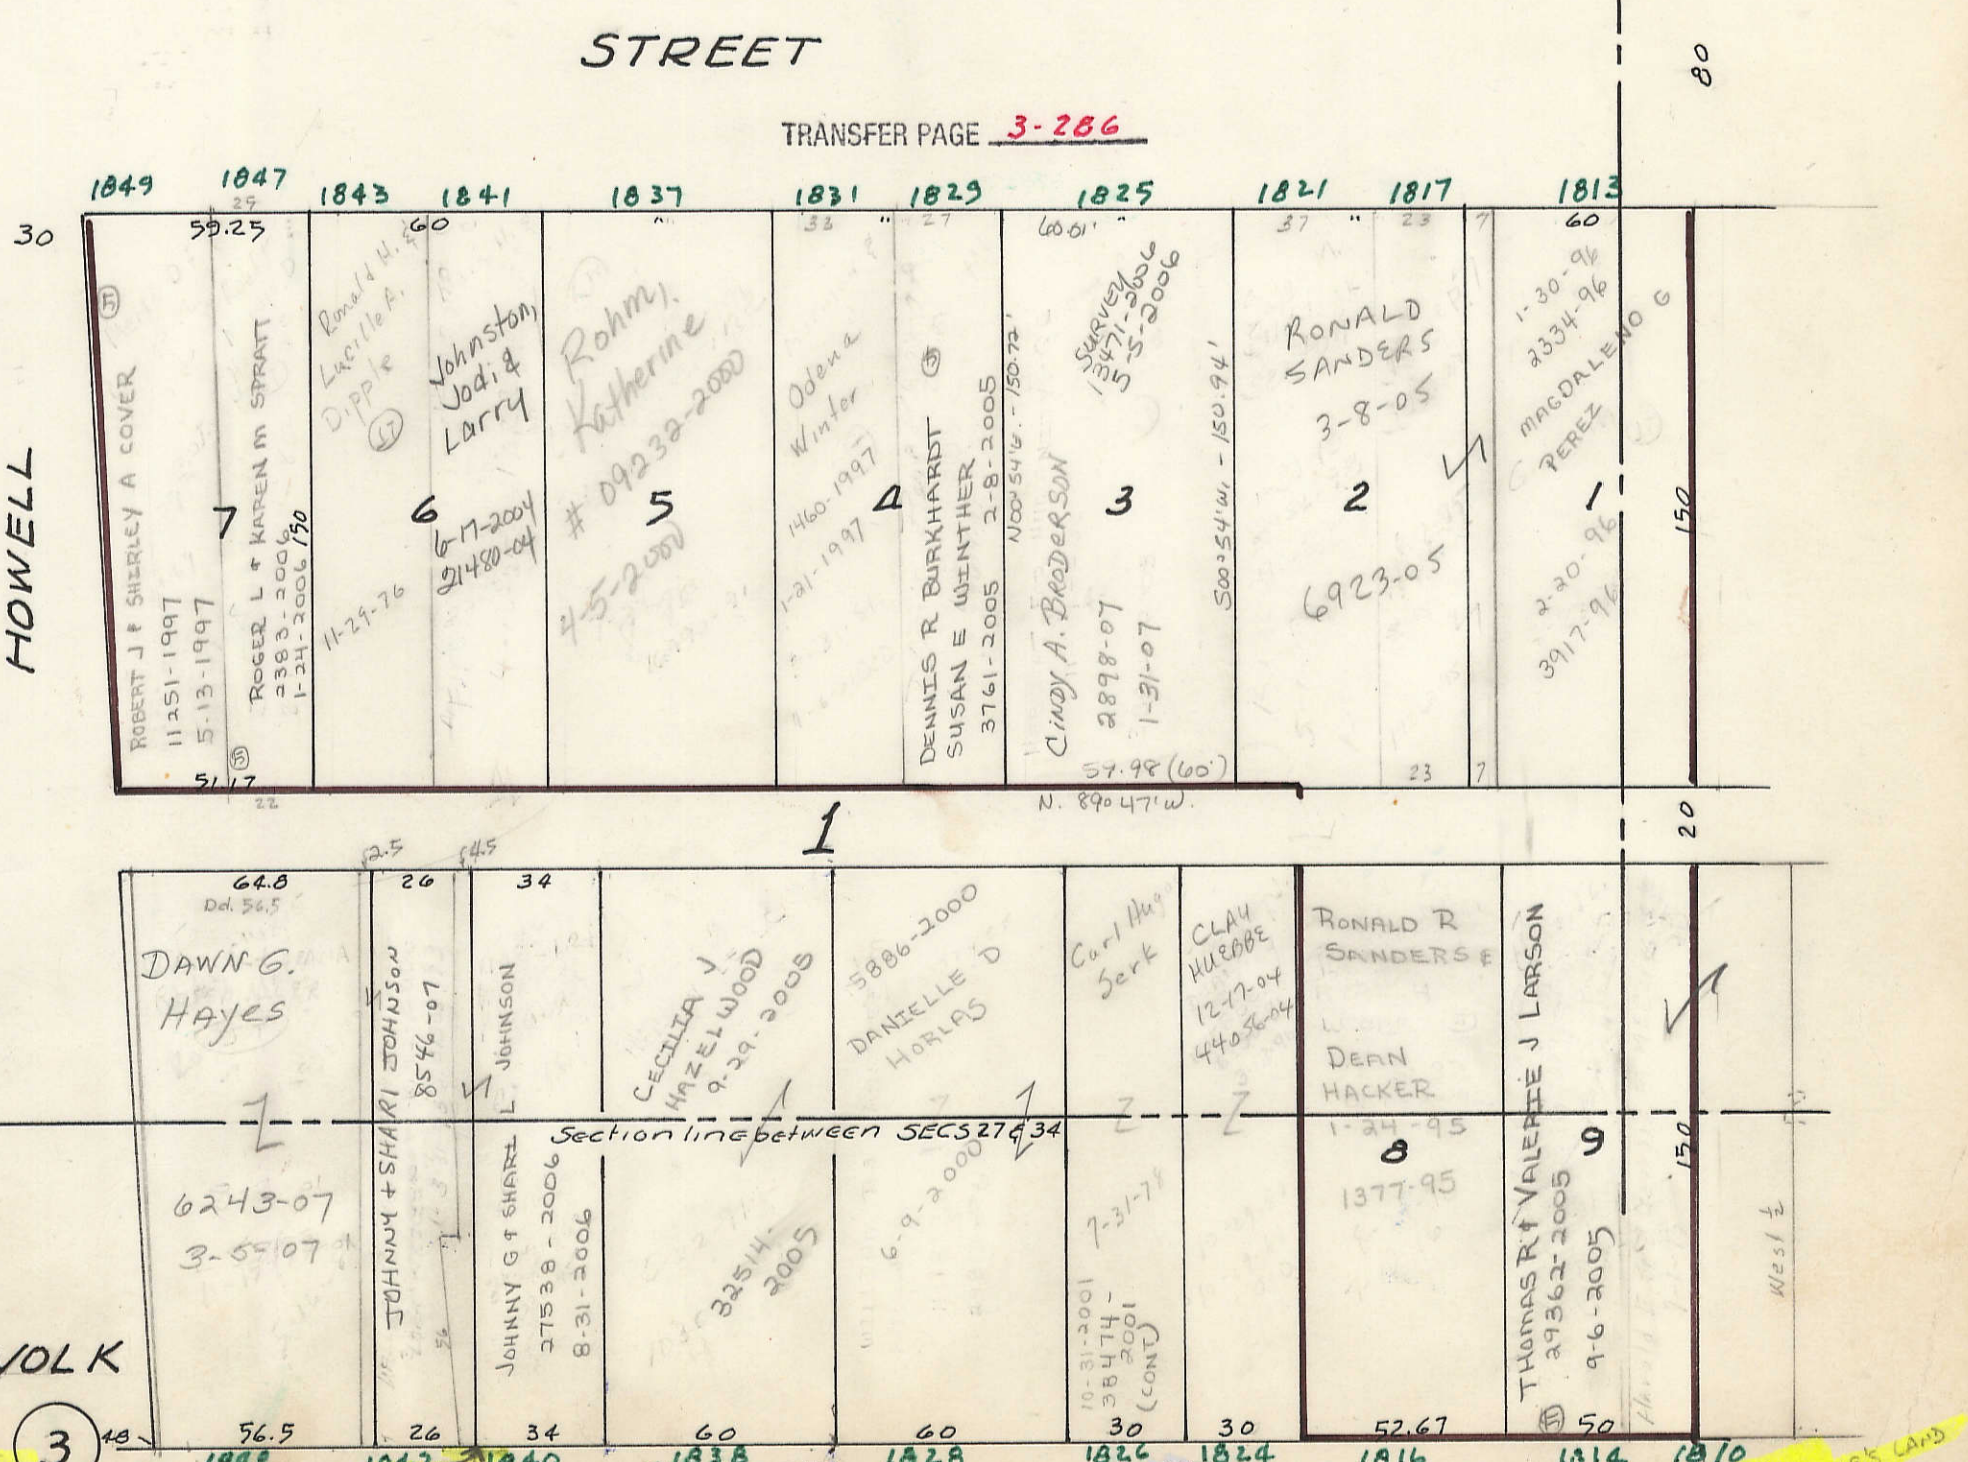 STREET
80
TRANSFER PAGE 3-286
1849 1847 1843 1841 1837 1831 1829 1825 1821 1817 1813
30
HOWELL
59.25
60
"
33 " 27
60.01' "
37 " 23 7
60
JT
ROBERT J & SHIRLEY A COVER
11251-1997
5-13-1997
7
ROGER L & KAREN M SPRATT
2383-2006
1-24-2006
150
JT
51.17
22
Ronald H. &
Lucille R.
Dipple
JT
11-29-76
6
Johnston,
Jodi &
Larry
6-17-2004
21480-04
Rohm,
Katherine
# 09232-2000
4-5-2000
5
Odena
Winter
1460-1997
1-21-1997
4
DENNIS R BURKHARDT
SUSAN E WINTHER
3761-2005 2-8-2005
N00°54'E. - 150.72'
SURVEY
13471-2006
5-5-2006
3
Cindy A. BRODERSON
2898-07
1-31-07
S00°54'W. - 150.94'
59.98 (60')
N. 89°47'W.
RONALD
SANDERS
3-8-05
2
6923-05
23 7
1-30-96
2334-96
MAGDALENO G
PEREZ
1
2-20-96
3917-96
150
1
20
2.5 4.5
64.8
Dd. 56.5
DAWN G.
Hayes
6243-07
3-5-07
56.5
26
JOHNNY + SHARI JOHNSON
8546-07
56
26
34
JOHNNY G & SHARI L JOHNSON
27538-2006
8-31-2006
34
CECILIA J
HAZELWOOD
9-29-2005
32514-
2005
60
5886-2000
DANIELLE D
HORLAS
6-9-2000
60
Section line between SECS 27 & 34
Carl Hugo
Jerk
7-31-78
10-31-2001
38474-
2001
(CONT)
30
CLAY
HUEBBE
12-17-04
44056-04
30
RONALD R
SANDERS &
DEAN
HACKER
1-24-95
8
1377-95
52.67
THOMAS R & VALERIE J LARSON
29362-2005
9-6-2005
JT
9
50
150
West ½
VOLK
3
48
1838 1828 1826 1824 1816 1814 1810
LAND